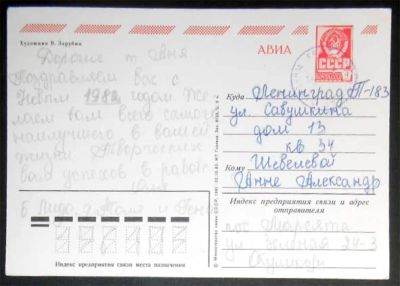 Художник В. Зарубин
АВИА
СССР
Поздравляем вас с
Новым 1982 годом. Же-
лаем вам всего самого
наилучшего в вашей
жизни. Творческих
успехов в работе
Куда Ленинград П-183
ул. Савушкина
дом 13
кв 34
Кому Шевелевой
Анне Александр
Индекс предприятия связи и адрес
отправителя
пос
ул Зелёная 24-3
Индекс предприятия связи места назначения